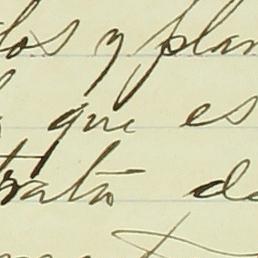 los y plan
que es
trata de